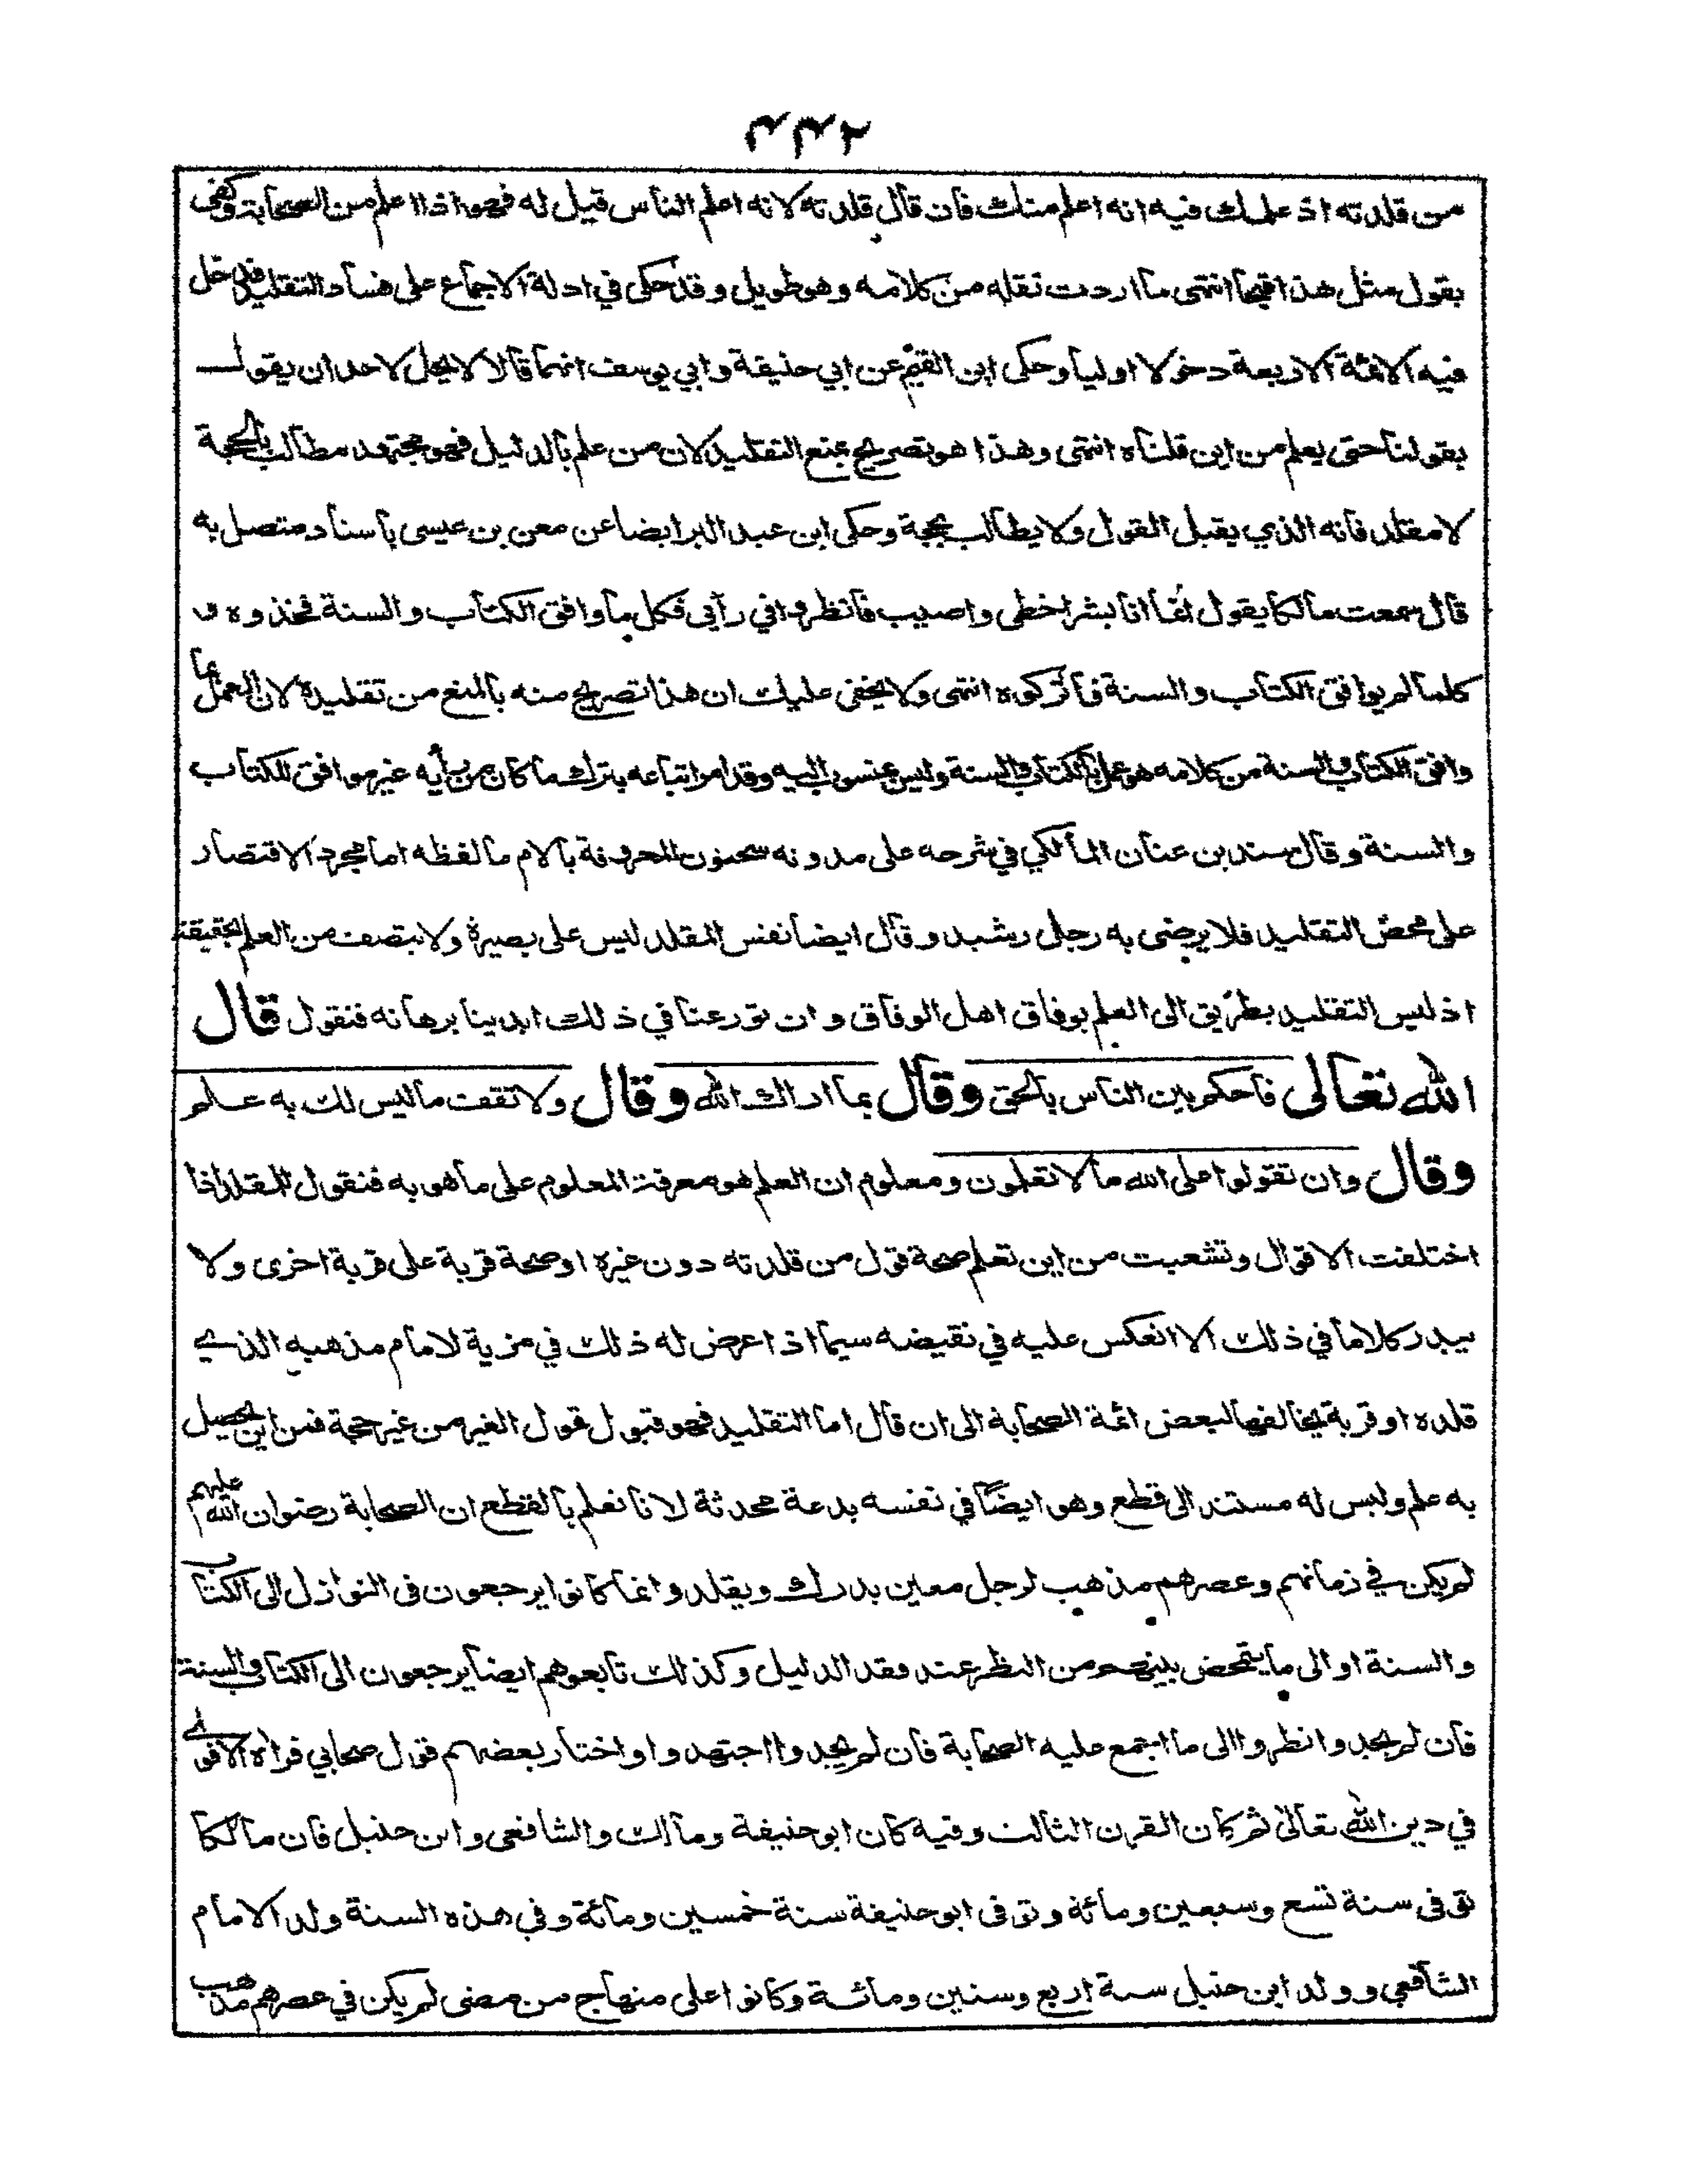 ٢٣٣
من قلدته اذ علمك فيه انه اعلم منك فان قال قلدته لانه اعلم الناس قيل له فهو اذا اعلم من الصحابة وكفى
بقول مثل هذا قبحا انتهى ما اردت نقله من كلامه وهو طويل وقد حكى في ادلة الاجماع على فساد التقليد فدخل
فيه الائمة الاربعة دخولا اوليا وحكى ابن القيم عن ابي حنيفة وابي يوسف انهما قالا لا يحل لاحد ان يقول
بقولنا حتى يعلم من اين قلناه انتهى وهذا هو تصريح بمنع التقليد لان من علم بالدليل فهو مجتهد مطالب بالحجة
لا مقلد فانه الذي يقبل القول ولا يطالب بحجة وحكى ابن عبد البر ايضا عن معن بن عيسى باسناد متصل به
قال سمعت مالكا يقول انما انا بشر اخطى واصيب فانظروا في رأيي فكل ما وافق الكتاب والسنة فخذوه و
كلما لم يوافق الكتاب والسنة فاتركوه انتهى ولا يخفى عليك ان هذا تصريح منه بالمنع من تقليده لان العمل بما
وافق الكتاب والسنة من كلامه هو عمل بالكتاب والسنة وليس بمنسوب اليه وقد امر اتباعه بترك ما كان من رأيه غير موافق للكتاب
والسنة وقال سند بن عنان المالكي في شرحه على مدونه سحنون المعروفة بالام ما لفظه اما مجرد الاقتصار
على محض التقليد فلا يرضى به رجل رشيد وقال ايضا نفس المقلد ليس على بصيرة ولا يتصف من العلم بحقيقة
اذ ليس التقليد بطريق الى العلم بوفاق اهل الوفاق وان نوزعنا في ذلك ابدينا برهانه فنقول قال
الله تعالى فاحكم بين الناس بالحق وقال بما اراك الله وقال ولا تقف ما ليس لك به علم
وقال وان تقولوا على الله ما لا تعلمون ومعلوم ان العلم هو معرفة المعلوم على ما هو به فنقول للمقلد اذا
اختلفت الاقوال وتشعبت من اين تعلم صحة قول من قلدته دون غيره او صحة قربة على قربة اخرى ولا
يبدر كلاما في ذلك الا انعكس عليه في نقيضه سيما اذا عرض له ذلك في مزية لامام مذهبه الذي
قلده او قربة يخالفها لبعض ائمة الصحابة الى ان قال اما التقليد فهو قبول قول الغير من غير حجة فمن اين يحصل
به علم وليس له مستند الى قطع وهو ايضا في نفسه بدعة محدثة لانا نعلم بالقطع ان الصحابة رضوان الله عليهم
لم يكن في زمانهم وعصرهم مذهب لرجل معين يدرك ويقلد وانما كانوا يرجعون في النوازل الى الكتاب
والسنة او الى ما يتمحض بينهم من النظر عند فقد الدليل وكذلك تابعوهم ايضا يرجعون الى الكتاب والسنة
فان لم يجدوا نظروا الى ما اجمع عليه الصحابة فان لم يجدوا اجتهدوا واختار بعضهم قول صحابي فراه الاقوى
في دين الله تعالى ثم كان القرن الثالث وفيه كان ابو حنيفة ومالك والشافعي وابن حنبل فان مالكا
توفى سنة تسع وسبعين ومائة وتوفى ابو حنيفة سنة خمسين ومائة وفي هذه السنة ولد الامام
الشافعي وولد ابن حنبل سنة اربع وستين ومائة وكانوا على منهاج من مضى لم يكن في عصرهم مذهب